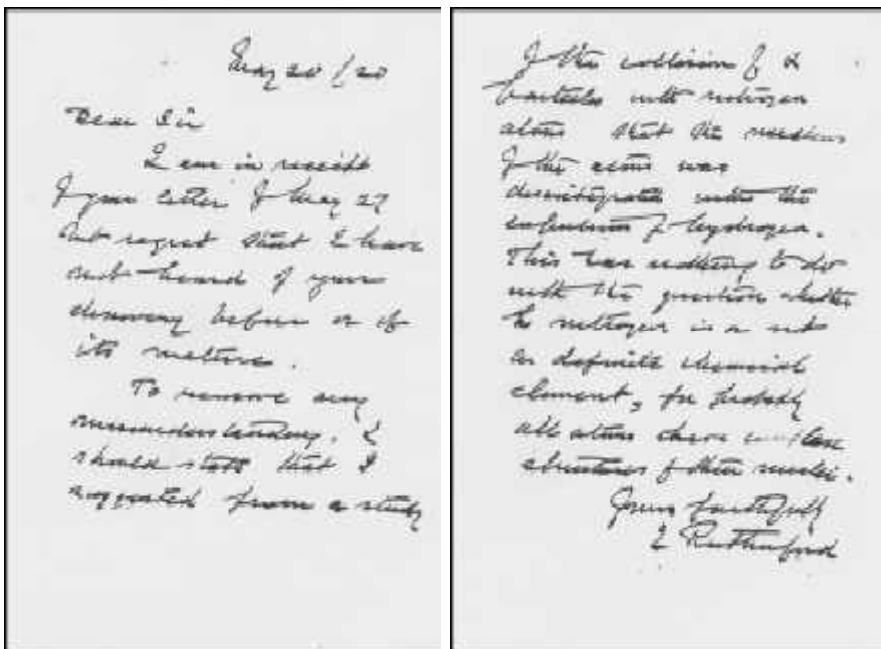 May 20/20
Dear Sir
I am in receipt
of your letter of May 27
but regret that I have
not heard of your
discovery before or of
its nature.
To remove any
misunderstanding, I
should state that I
suggested from a study
of the collision of α
particles with nitrogen
atoms that the nucleus
of the atom was
disintegrated with the
expulsion of hydrogen.
This has nothing to do
with the question whether
nitrogen is a
or definite chemical
element, for probably
all atoms have complex
structures of their nuclei.
Yours faithfully
E Rutherford